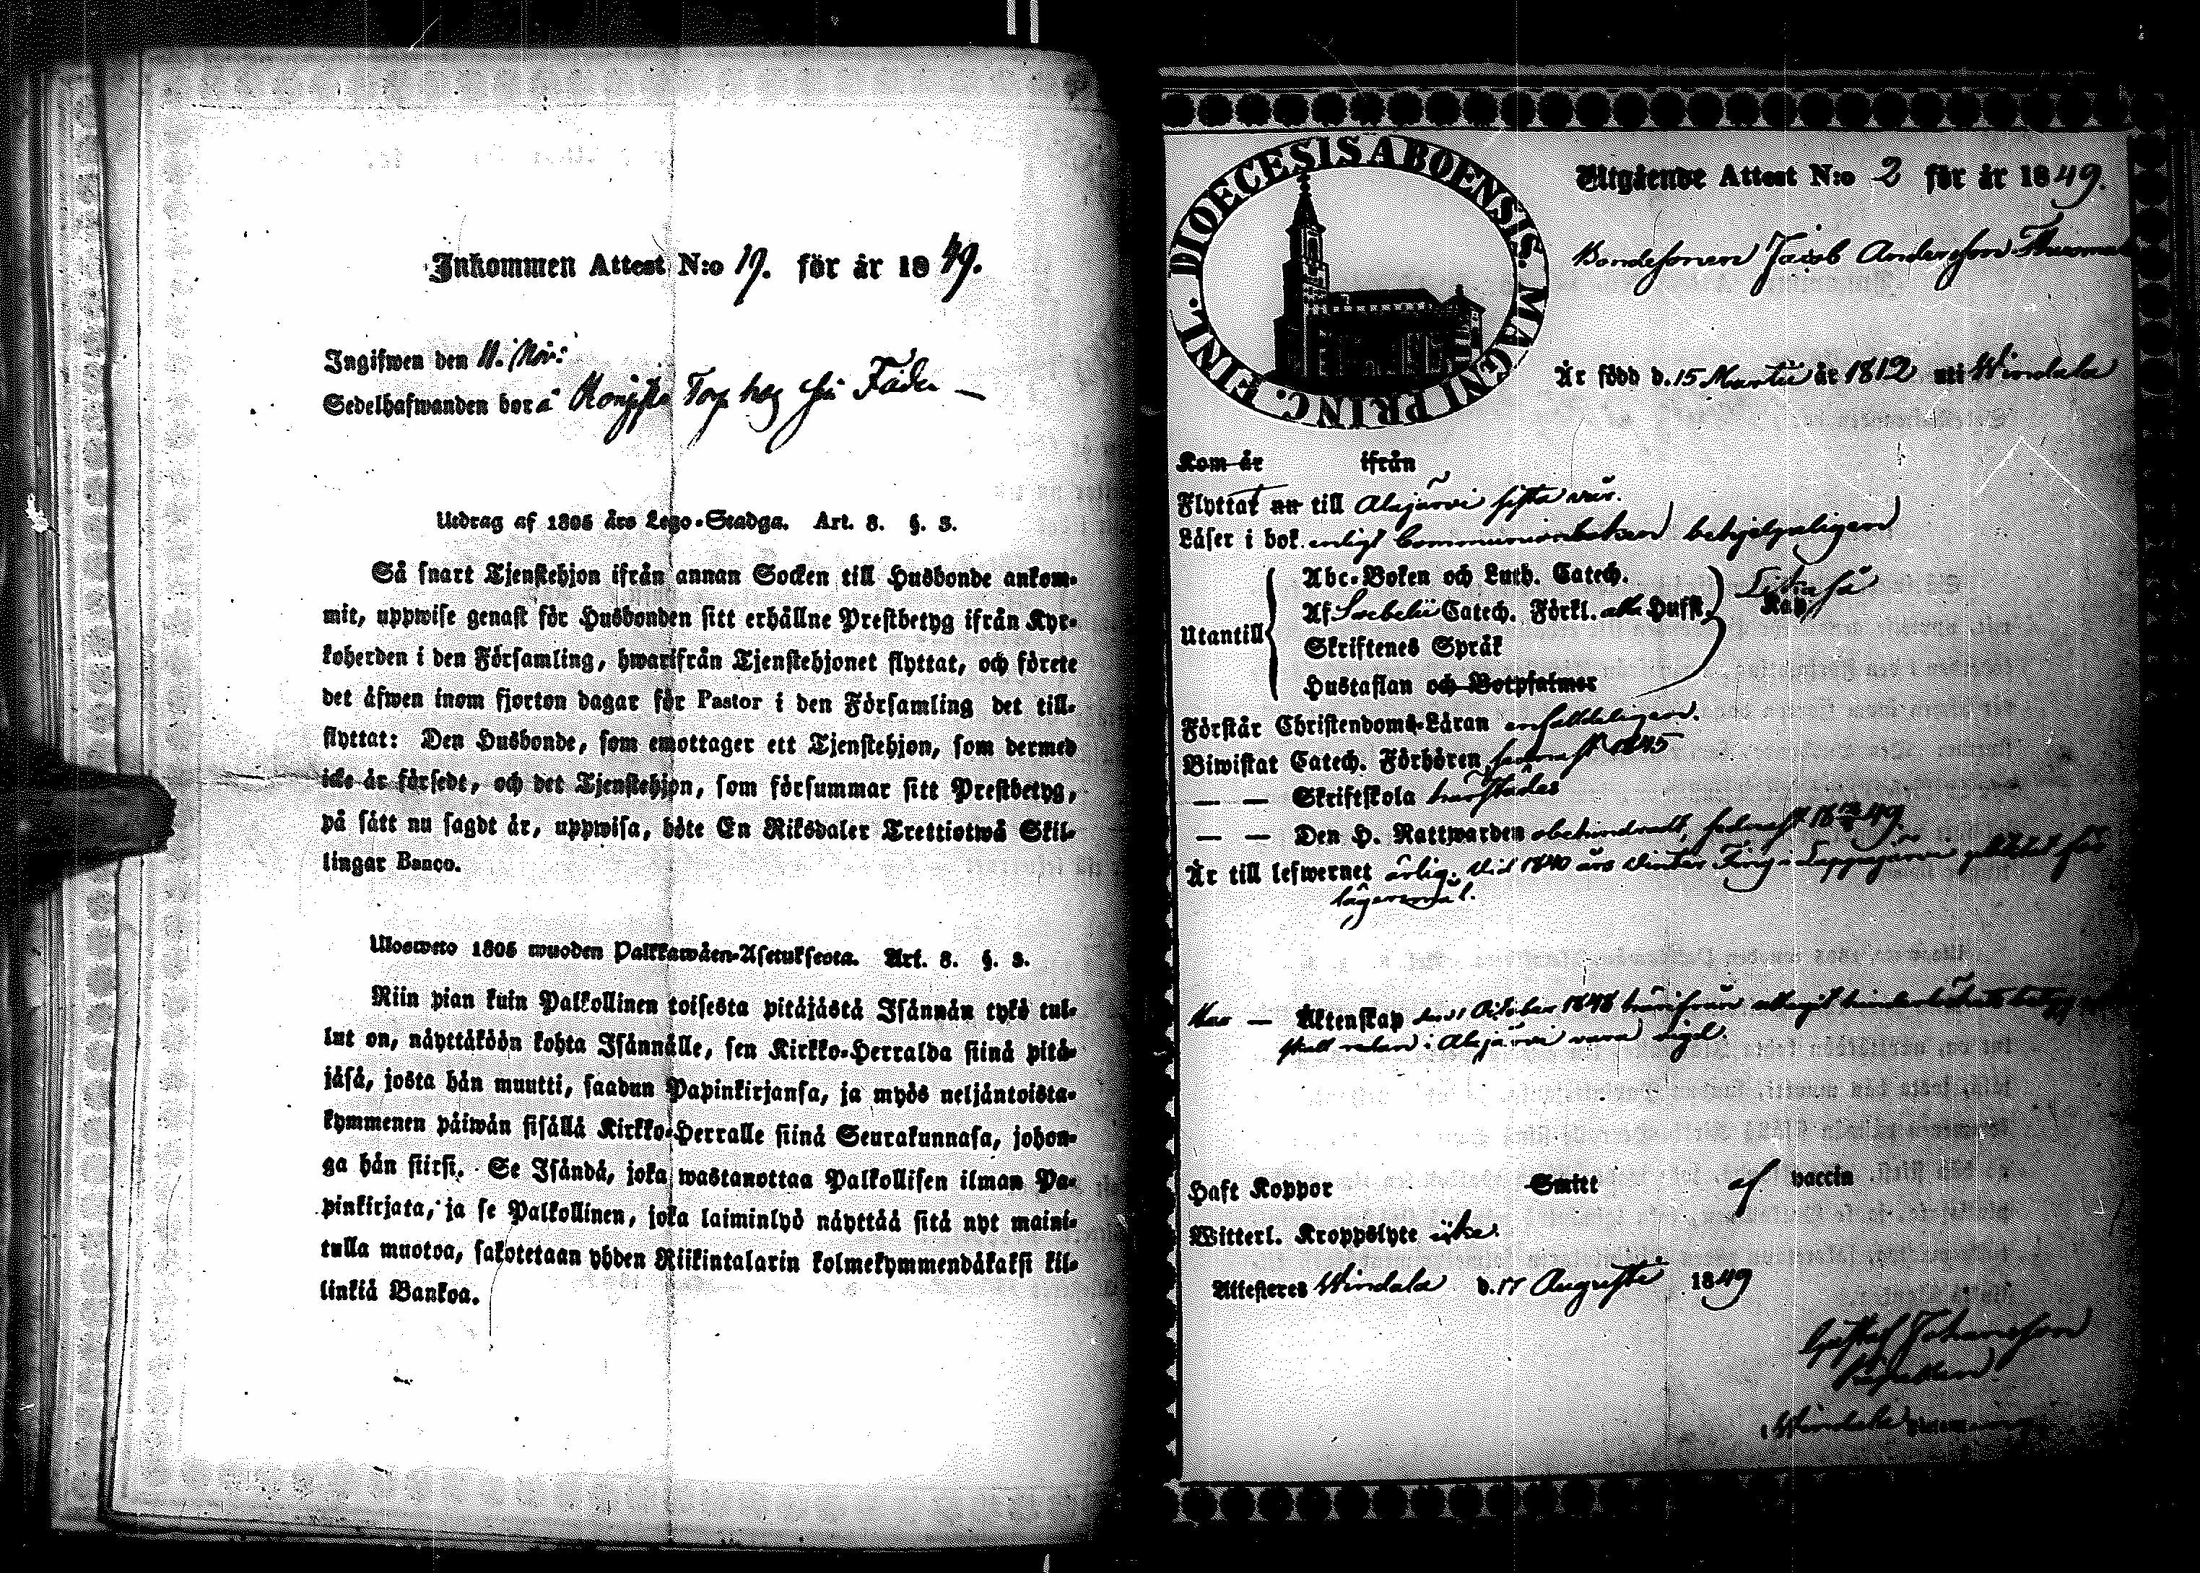 Inkommen Attest N:o 19. för år 1849.
Ingifwen den 11. Nov:
Sedelhafwanden bor å Torp hos
Utdrag af 1805 års Lego-Stadga. Art. 8. §. 3.
Så snart Tjenstehjon ifrån annan Socken till Husbonde ankom-
mit, uppwise genast för Husbonden sitt erhållne Prestbetyg ifrån Kyr-
koherden i den Församling, hwarifrån Tjenstehjonet flyttat, och förete
det äfwen inom fjorton dagar för Pastor i den Församling det till-
flyttat: Den Husbonde, som emottager ett Tjenstehjon, som dermed
icke är försedt, och det Tjenstehjon, som försummar sitt Prestbetyg,
på sätt nu sagdt är, uppwisa, böte En Riksdaler Trettiotwå Skil-
lingar Banco.
Ulosweto 1805 wuoden Palkkawäen-Asetuksesta. Art. 8. §. 3.
Niin pian kuin Palkollinen toisesta pitäjästä Isännän tykö tul-
lut on, näyttäköön kohta Isännälle, sen Kirkko-Herralda siinä pitä-
jäsä, josta hän muutti, saadun Papinkirjansa, ja myös neljäntoista-
kymmenen päiwän sisällä Kirkko-Herralle siinä Seurakunnasa, johon-
ga hän siirsi. Se Isändä, joka wastanottaa Palkollisen ilman Pa-
pinkirjata, ja se Palkollinen, joka laiminlyö näyttää sitä nyt maini-
tulla muotoa, sakotetaan yhden Riikintalarin kolmekymmendäkaksi kil-
linkiä Bankoa.
DIOECESIS ABOENSIS. MAGNI PRINC. FINL.
Utgående Attest N:o 2 för år 1849.
Bondesonen Jacob Andersson
Är född d. 15 Martii år 1812 uti Windala
Kom år ifrån
Flyttat nu till Alajärvi sista vår.
Läser i bok enligt Communionboken behjelpeligen
Abc-Boken och Luth. Catech.
Af Svebelii Catech. Förkl. alla Hufst. Kan
Utantill
Skriftenes Språk
Hustaflan och Botpsalmer
Förstår Christendoms-Läran enfaldeligen.
Biwistat Catech. Förhören senast 1845
— — Skriftskola härstädes
— — Den H. Nattwarden obehindradt, sednast 49
Är till lefwernet ärlig. Vid 1840 års Winter Ting i Lappajärvi pliktat för
lägersmål.
Har — Äktenskap den 1 October 1848 härifrån uttagit hinderlöshets betyg
skall redan i Alajärvi vara vigd.
Haft Koppor Smitt af vaccin
Witterl. Kroppslyte icke.
Attesteres Windala d. 17 Augusti 1849
Gustaf Johansson
Windala